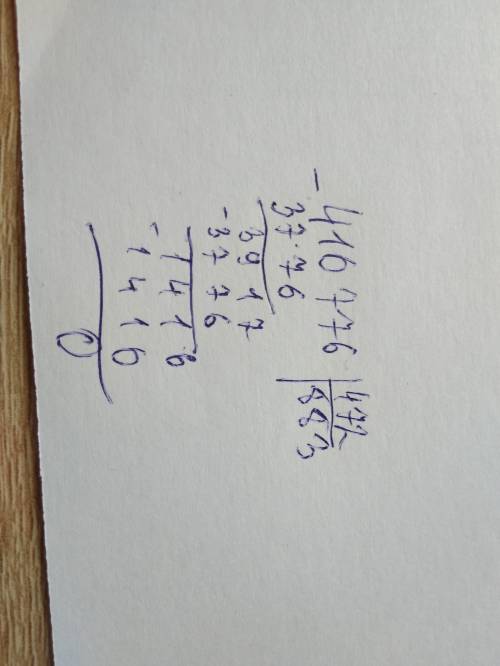 - 416776 | 472
3776 | 883
3917
- 3776
1416
- 1416
0